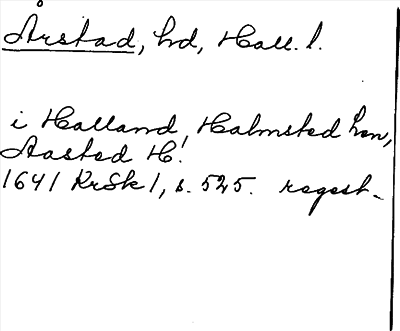 Årstad, hd, Hall. l.
i Halland, Halmsted len,
Aasted H!
1641 KrSk 1, s. 525. regest-